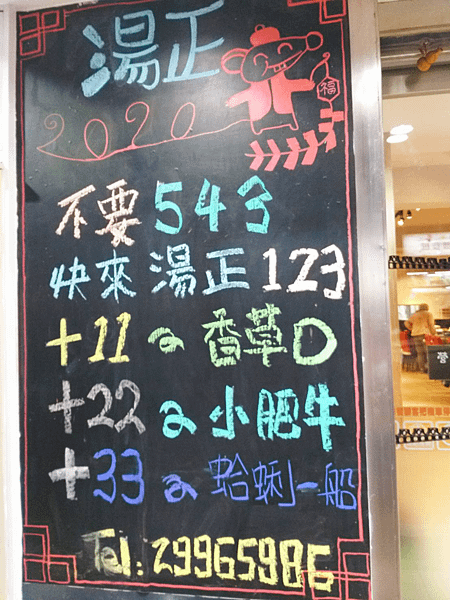 湯正
2020
福
不要543
快來湯正123
+11a香草O
+22a小肥牛
+33a蛤蜊一船
Tel:29965986
營